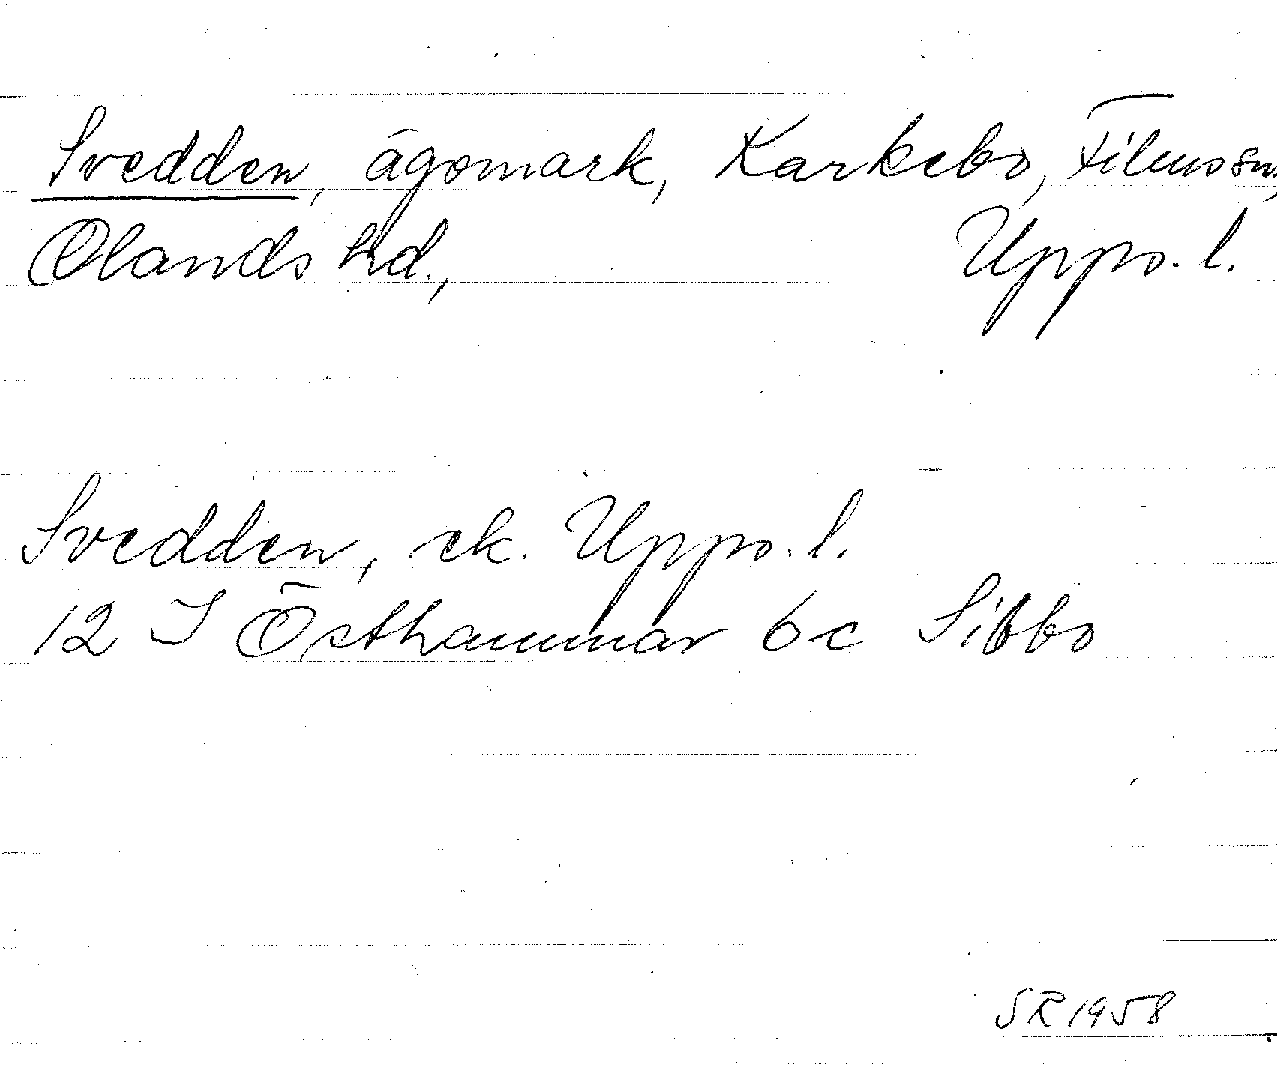 Svedden, ägomark, Karkebo, Films sn,
Olands hd., Upps. l.
Svedden, ek. Upps. l.
12 I Östhammar 6c Sibbo
SR 1958